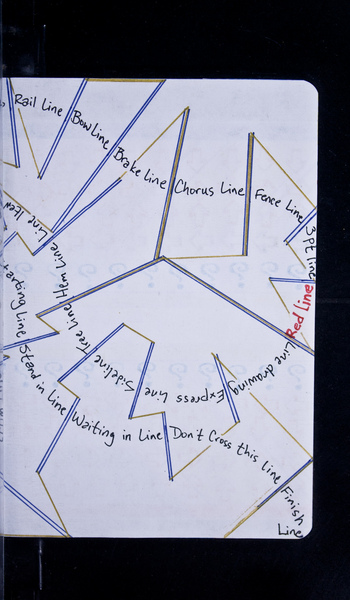 Rail Line
Bow Line
Brake Line
Chorus Line
Fence Line
3pt line
Red Line
Line drawing
Line Item
Hem Line
Tree Line
Sideline
Express Line
Stand in Line
Waiting in Line
Don't Cross this line
Finish
Line